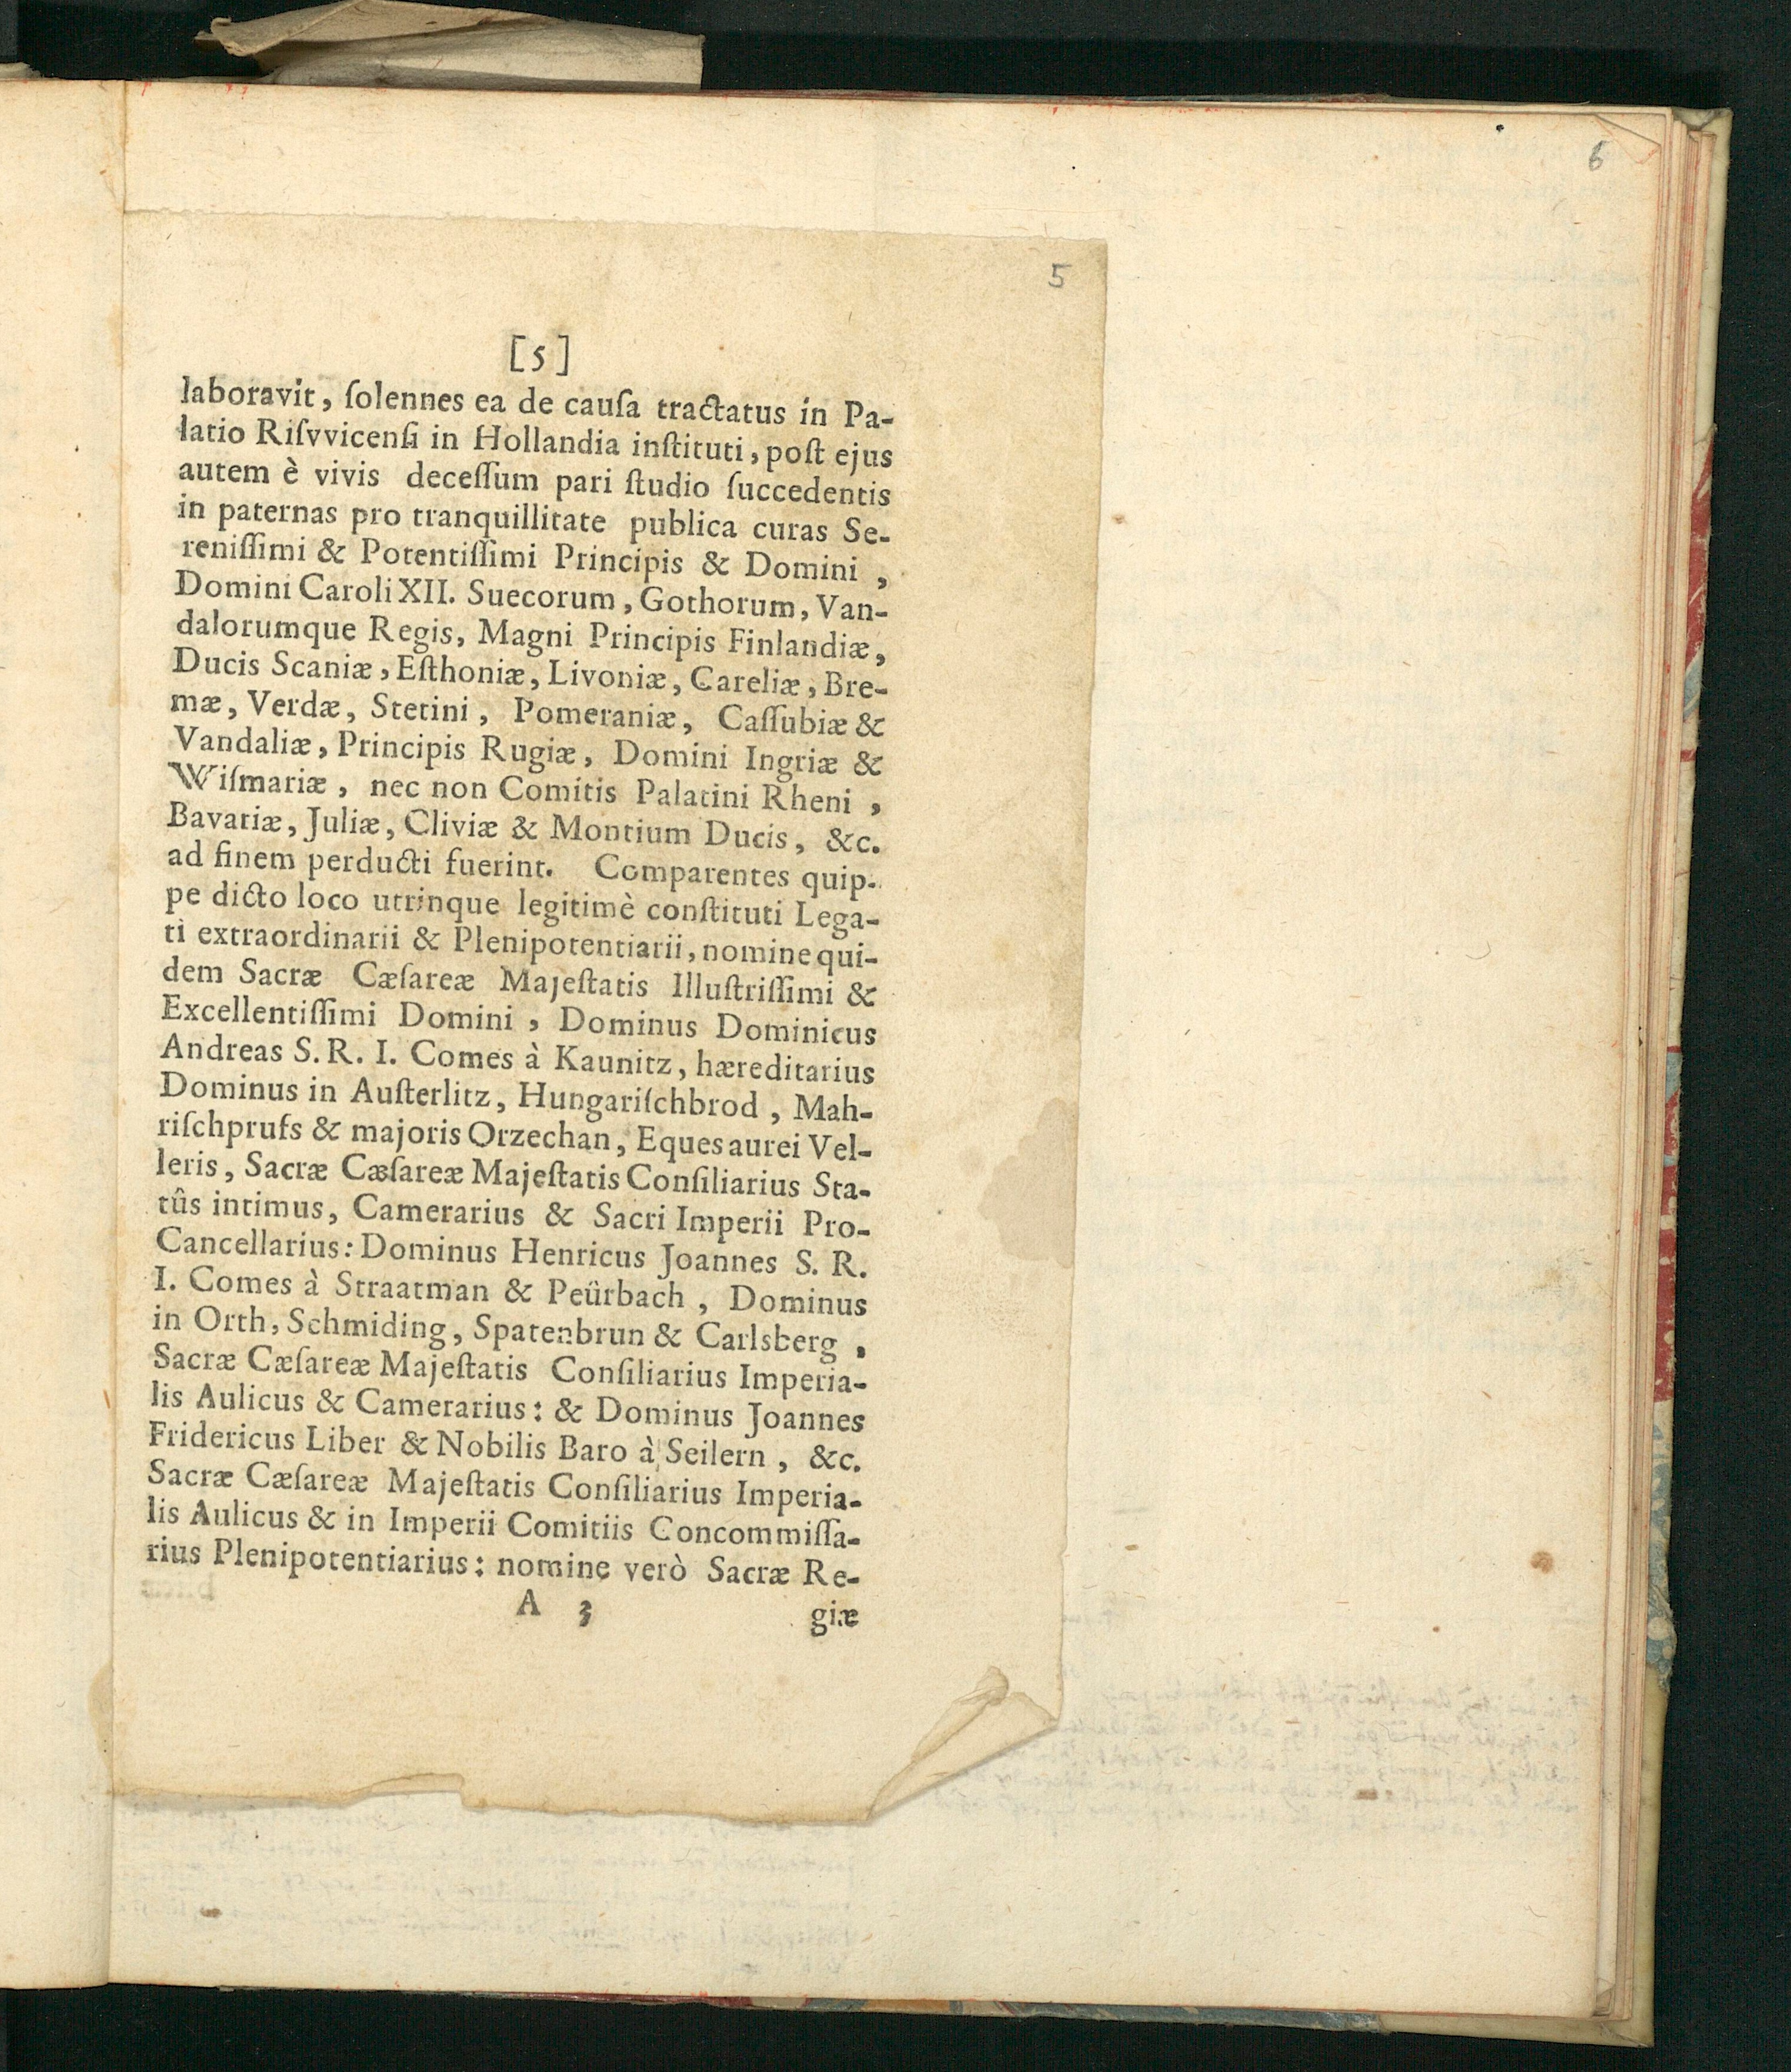 6
5
[5]
laboravit, ſolennes ea de cauſa tractatus in Pa-
latio Riſvvicenſi in Hollandia inſtituti, poſt ejus
autem è vivis deceſſum pari ſtudio ſuccedentis
in paternas pro tranquillitate publica curas Se-
reniſſimi & Potentiſſimi Principis & Domini ,
Domini Caroli XII. Suecorum, Gothorum, Van-
dalorumque Regis, Magni Principis Finlandiæ,
Ducis Scaniæ, Eſthoniæ, Livoniæ, Careliæ, Bre-
mæ, Verdæ, Stetini, Pomeraniæ, Caſſubiæ &
Vandaliæ, Principis Rugiæ, Domini Ingriæ &
Wiſmariæ, nec non Comitis Palatini Rheni ,
Bavariæ, Juliæ, Cliviæ & Montium Ducis, &c.
ad finem perducti fuerint. Comparentes quip-
pe dicto loco utrinque legitimè conſtituti Lega-
ti extraordinarii & Plenipotentiarii, nomine qui-
dem Sacræ Cæſareæ Majeſtatis Illuſtriſſimi &
Excellentiſſimi Domini, Dominus Dominicus
Andreas S. R. I. Comes à Kaunitz, hæreditarius
Dominus in Auſterlitz, Hungariſchbrod, Mah-
riſchprufs & majoris Orzechan, Eques aurei Vel-
leris, Sacræ Cæſareæ Majeſtatis Conſiliarius Sta-
tûs intimus, Camerarius & Sacri Imperii Pro-
Cancellarius: Dominus Henricus Joannes S. R.
I. Comes à Straatman & Peürbach, Dominus
in Orth, Schmiding, Spatenbrun & Carlsberg,
Sacræ Cæſareæ Majeſtatis Conſiliarius Imperia-
lis Aulicus & Camerarius: & Dominus Joannes
Fridericus Liber & Nobilis Baro à Seilern, &c.
Sacræ Cæſareæ Majeſtatis Conſiliarius Imperia-
lis Aulicus & in Imperii Comitiis Concommiſſa-
rius Plenipotentiarius: nomine verò Sacræ Re-
A 3 giæ